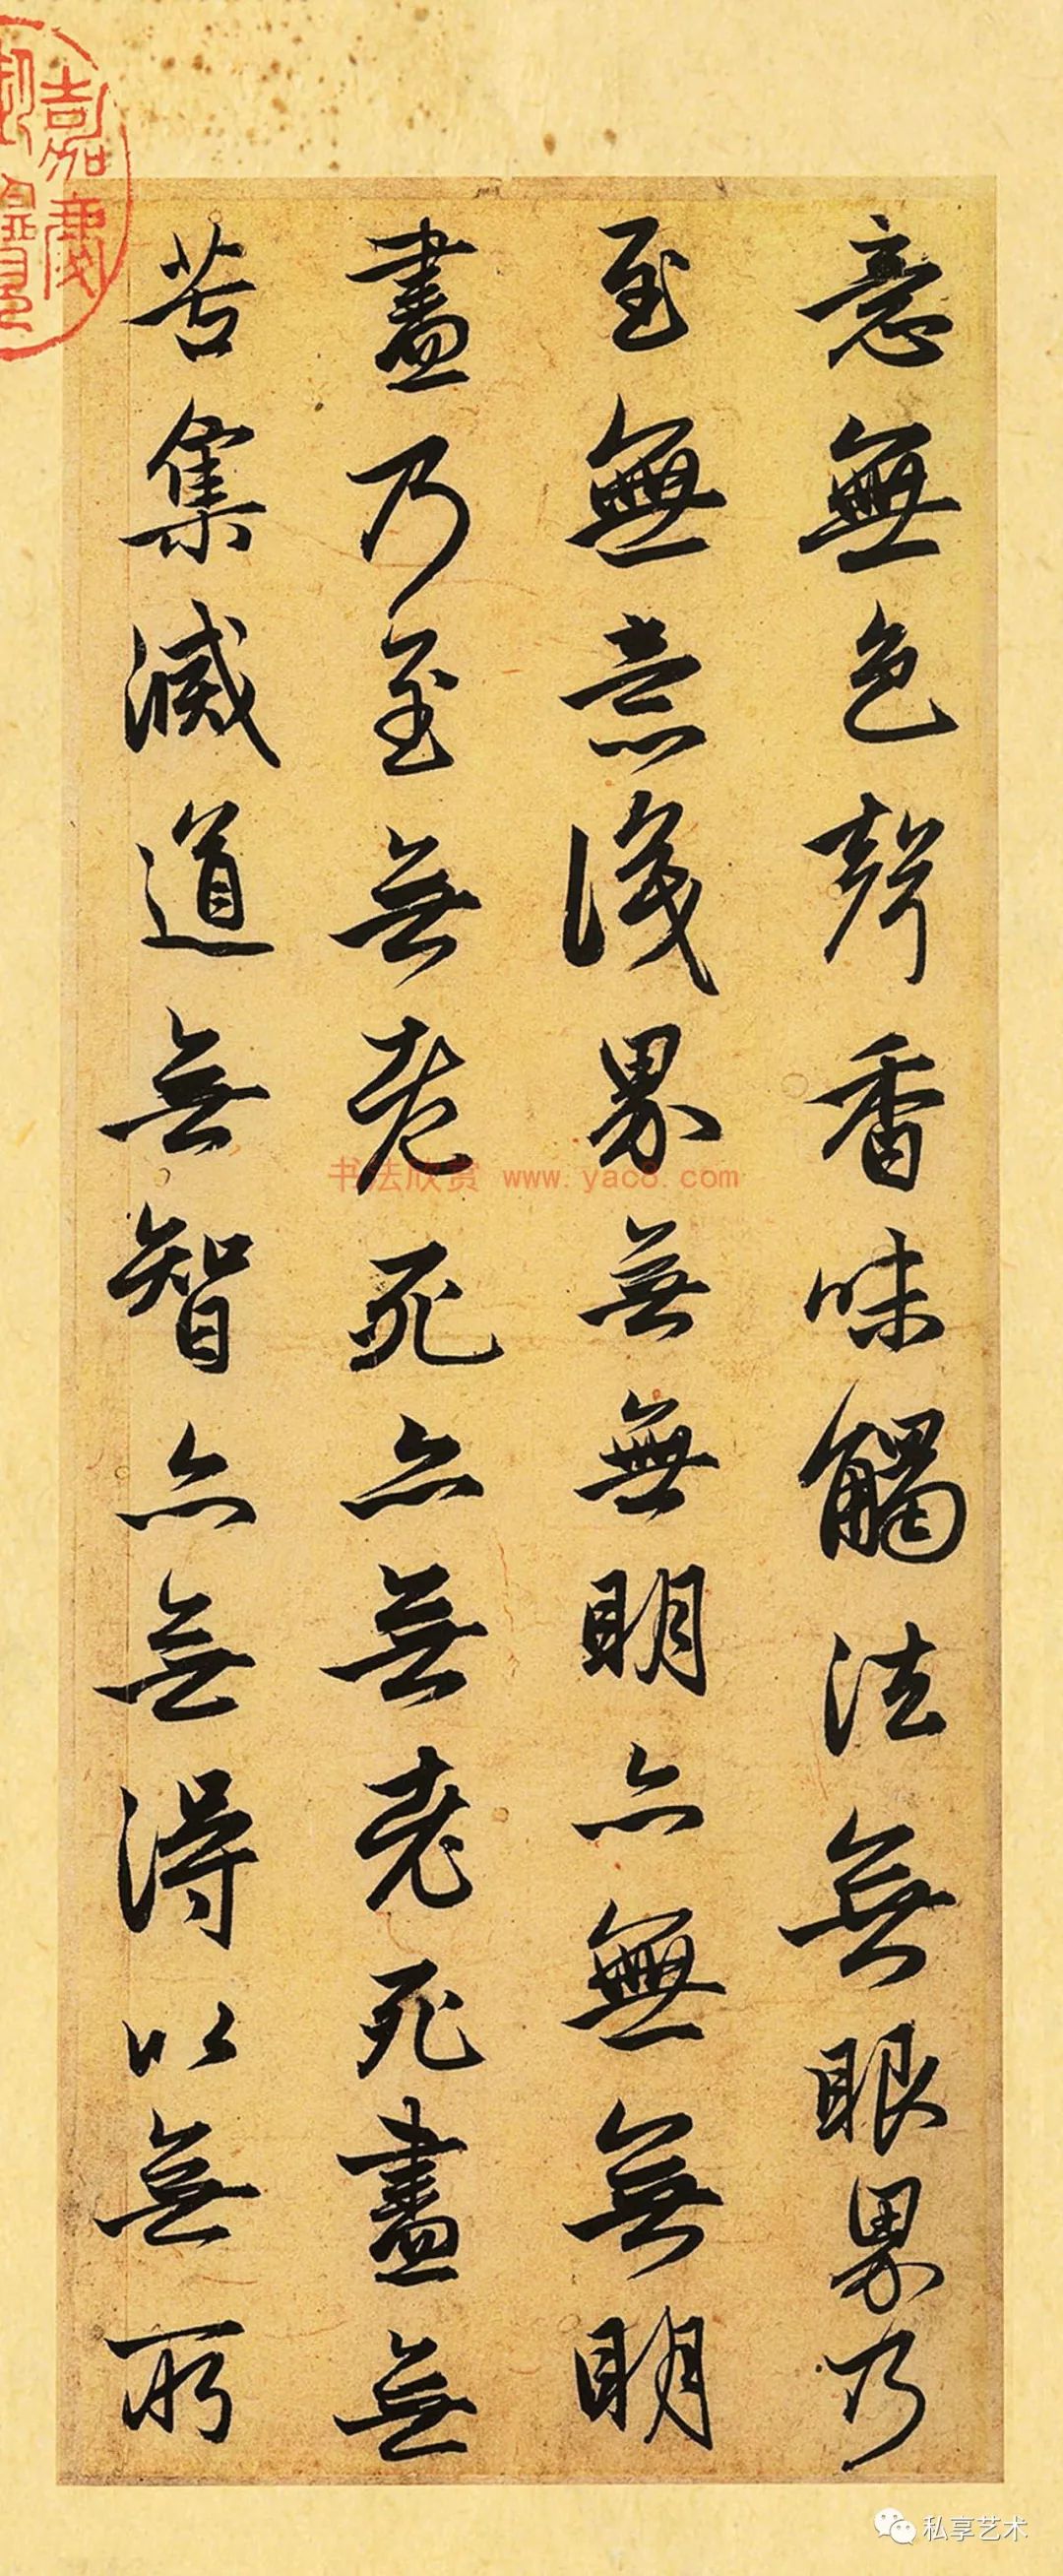 意無色聲香味觸法無眼界乃
至無意識界無無明亦無無明
盡乃至無老死亦無老死盡無
苦集滅道無智亦無得以無所
嘉慶
御覽
书法欣赏 www.yac8.com
私享艺术